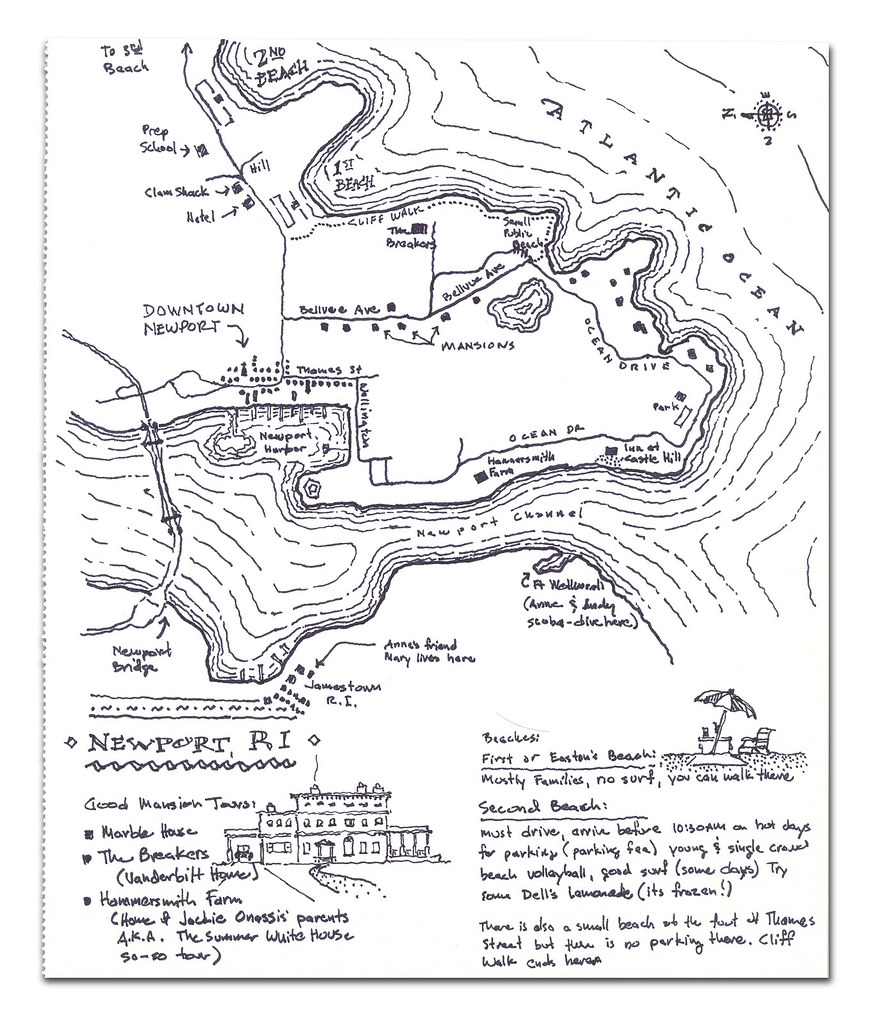 To 3rd
Beach
2ND
BEACH
Prep
School
Hill
Clam Shack
Hotel
1ST
BEACH
CLIFF WALK
The
Breakers
Small
Public
Beach
ATLANTIC OCEAN
N
E
S
W
DOWNTOWN
NEWPORT
Bellvue Ave
Bellvue Ave
MANSIONS
OCEAN
DRIVE
Thames St
Wellington
Park
Newport
Harbor
OCEAN DR
Hammersmith
Farm
Inn at
Castle Hill
Newport Channel
(Anne & Judy
scuba-dive here)
Newport
Bridge
Anne's friend
Mary lives here
Jamestown
R.I.
NEWPORT, RI
Good Mansion Tours:
Marble House
The Breakers
(Vanderbilt Home)
Hammersmith Farm
(Home of Jackie Onassis' parents
A.K.A. The Summer White House
so-so tour)
Beaches:
First or Easton's Beach:
Mostly Families, no surf, you can walk there
Second Beach:
must drive, arrive before 10:30AM on hot days
for parking (parking fee) young & single crowd
beach volleyball, good surf (some days) Try
some Dell's Lemonade (its frozen!)
There is also a small beach at the foot of Thames
Street but there is no parking there. Cliff
Walk ends here